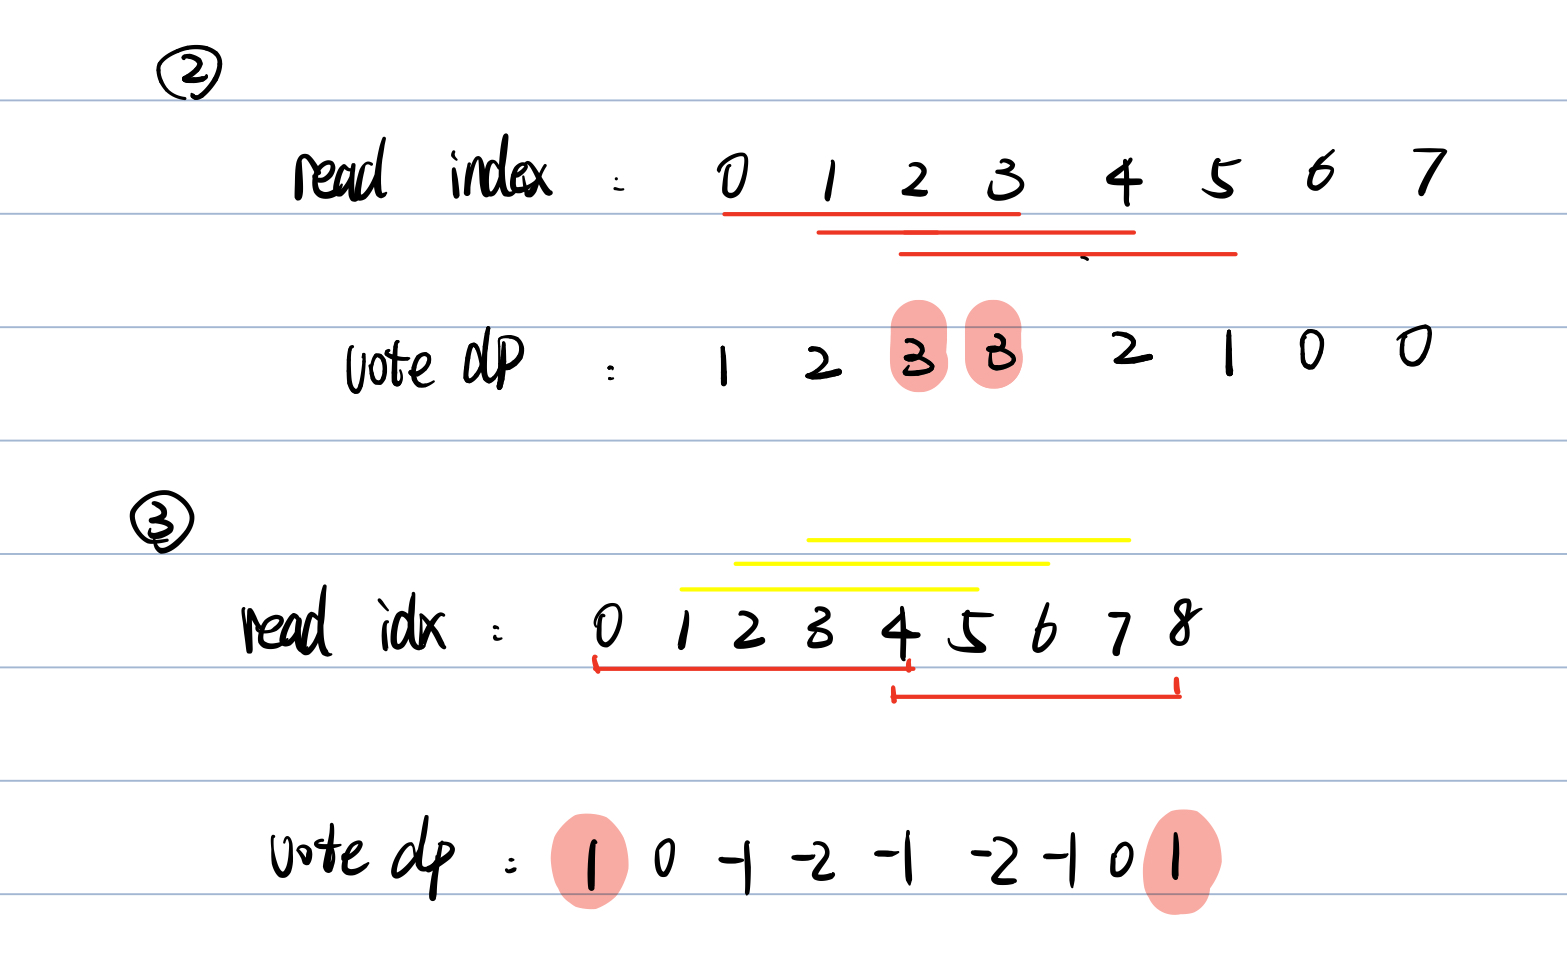 ②
read index : 0 1 2 3 4 5 6 7
vote dp : 1 2 3 3 2 1 0 0
③
read idx : 0 1 2 3 4 5 6 7 8
vote dp : 1 0 -1 -2 -1 -2 -1 0 1